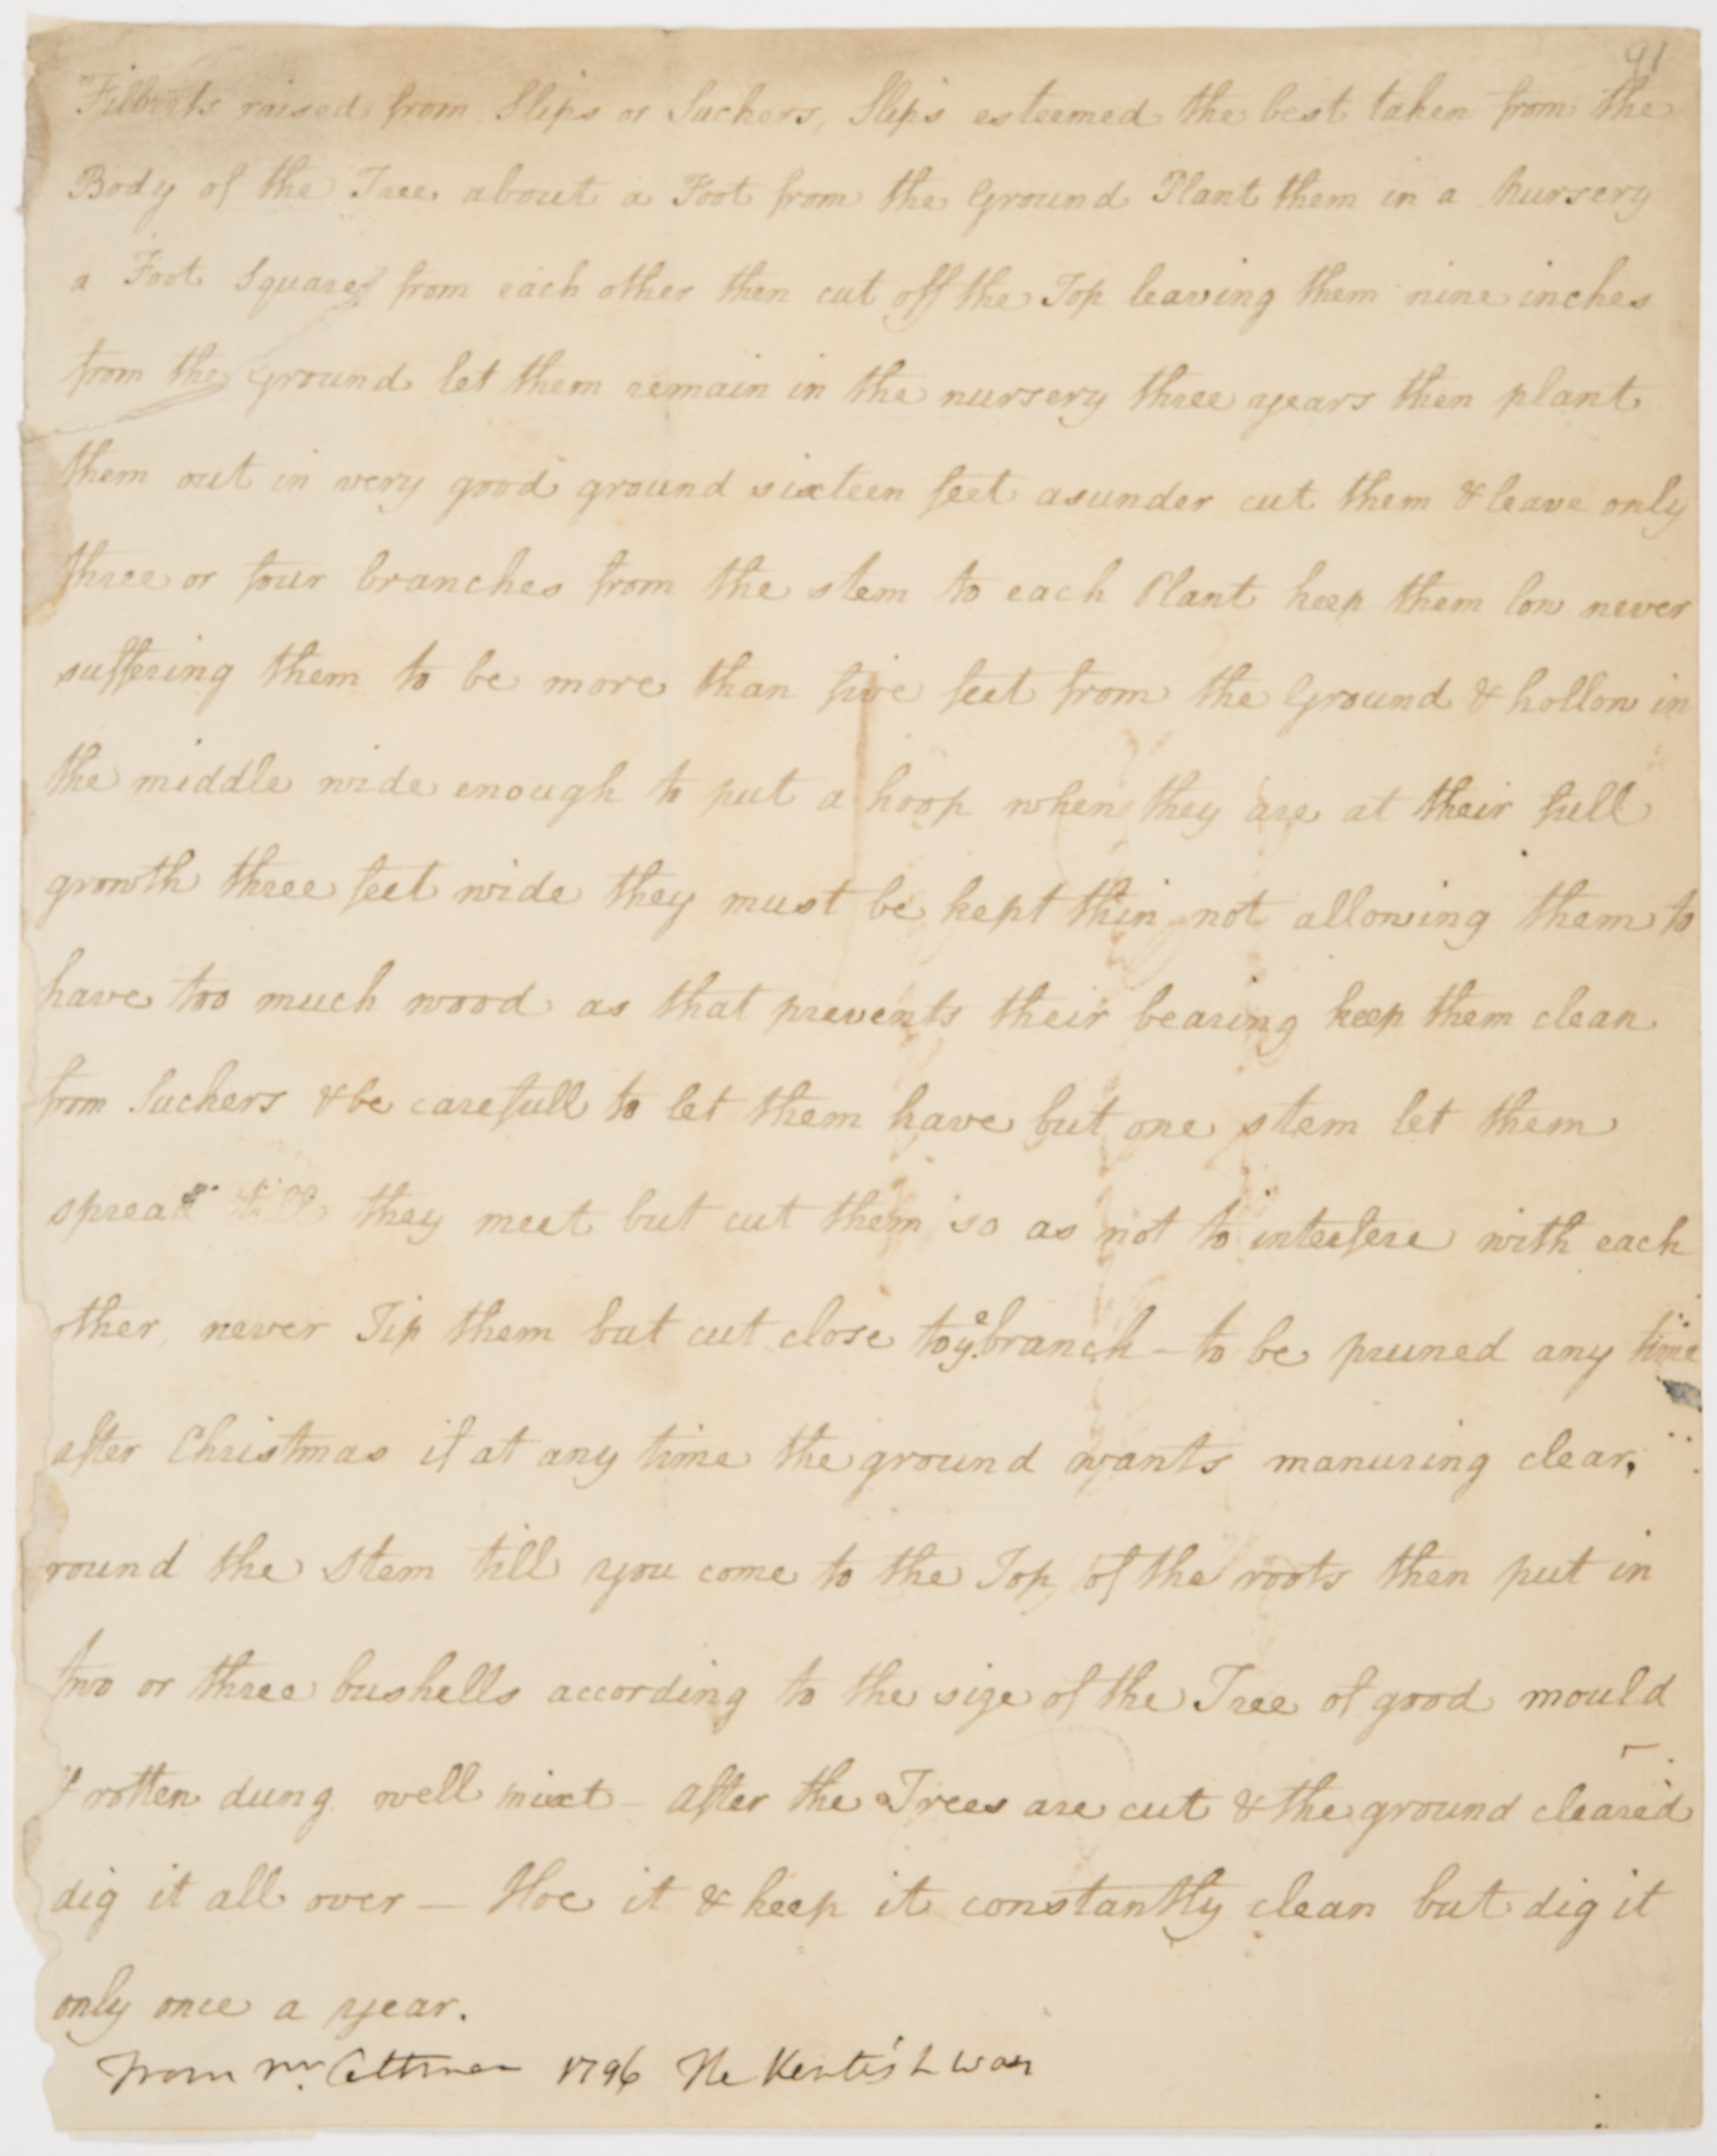 91
Filberts raised from Slips or Suckers, Slips esteemed the best taken from the
Body of the Tree about a Foot from the Ground Plant them in a Nursery
a Foot Square from each other then cut off the Top leaving them nine inches
from the Ground let them remain in the nursery three years then plant
them out in very good ground sixteen feet asunder cut them & leave only
three or four branches from the stem to each Plant keep them low never
suffering them to be more than five feet from the Ground & hollow in
the middle wide enough to put a hoop when they are at their full
growth three feet wide they must be kept thin not allowing them to
have too much wood as that prevents their bearing keep them clean
from Suckers & be carefull to let them have but one stem let them
spread till they meet but cut them so as not to interfere with each
other, never Tip them but cut close to ye branch - to be pruned any time
after Christmas if at any time the ground wants manuring clear,
round the Stem till you come to the Top of the roots then put in
two or three bushells according to the size of the Tree of good mould
& rotten dung well mixt - after the Trees are cut & the ground cleared
dig it all over - Hoe it & keep it constantly clean but dig it
only once a year.
From Mr. 1796 The Kentish way